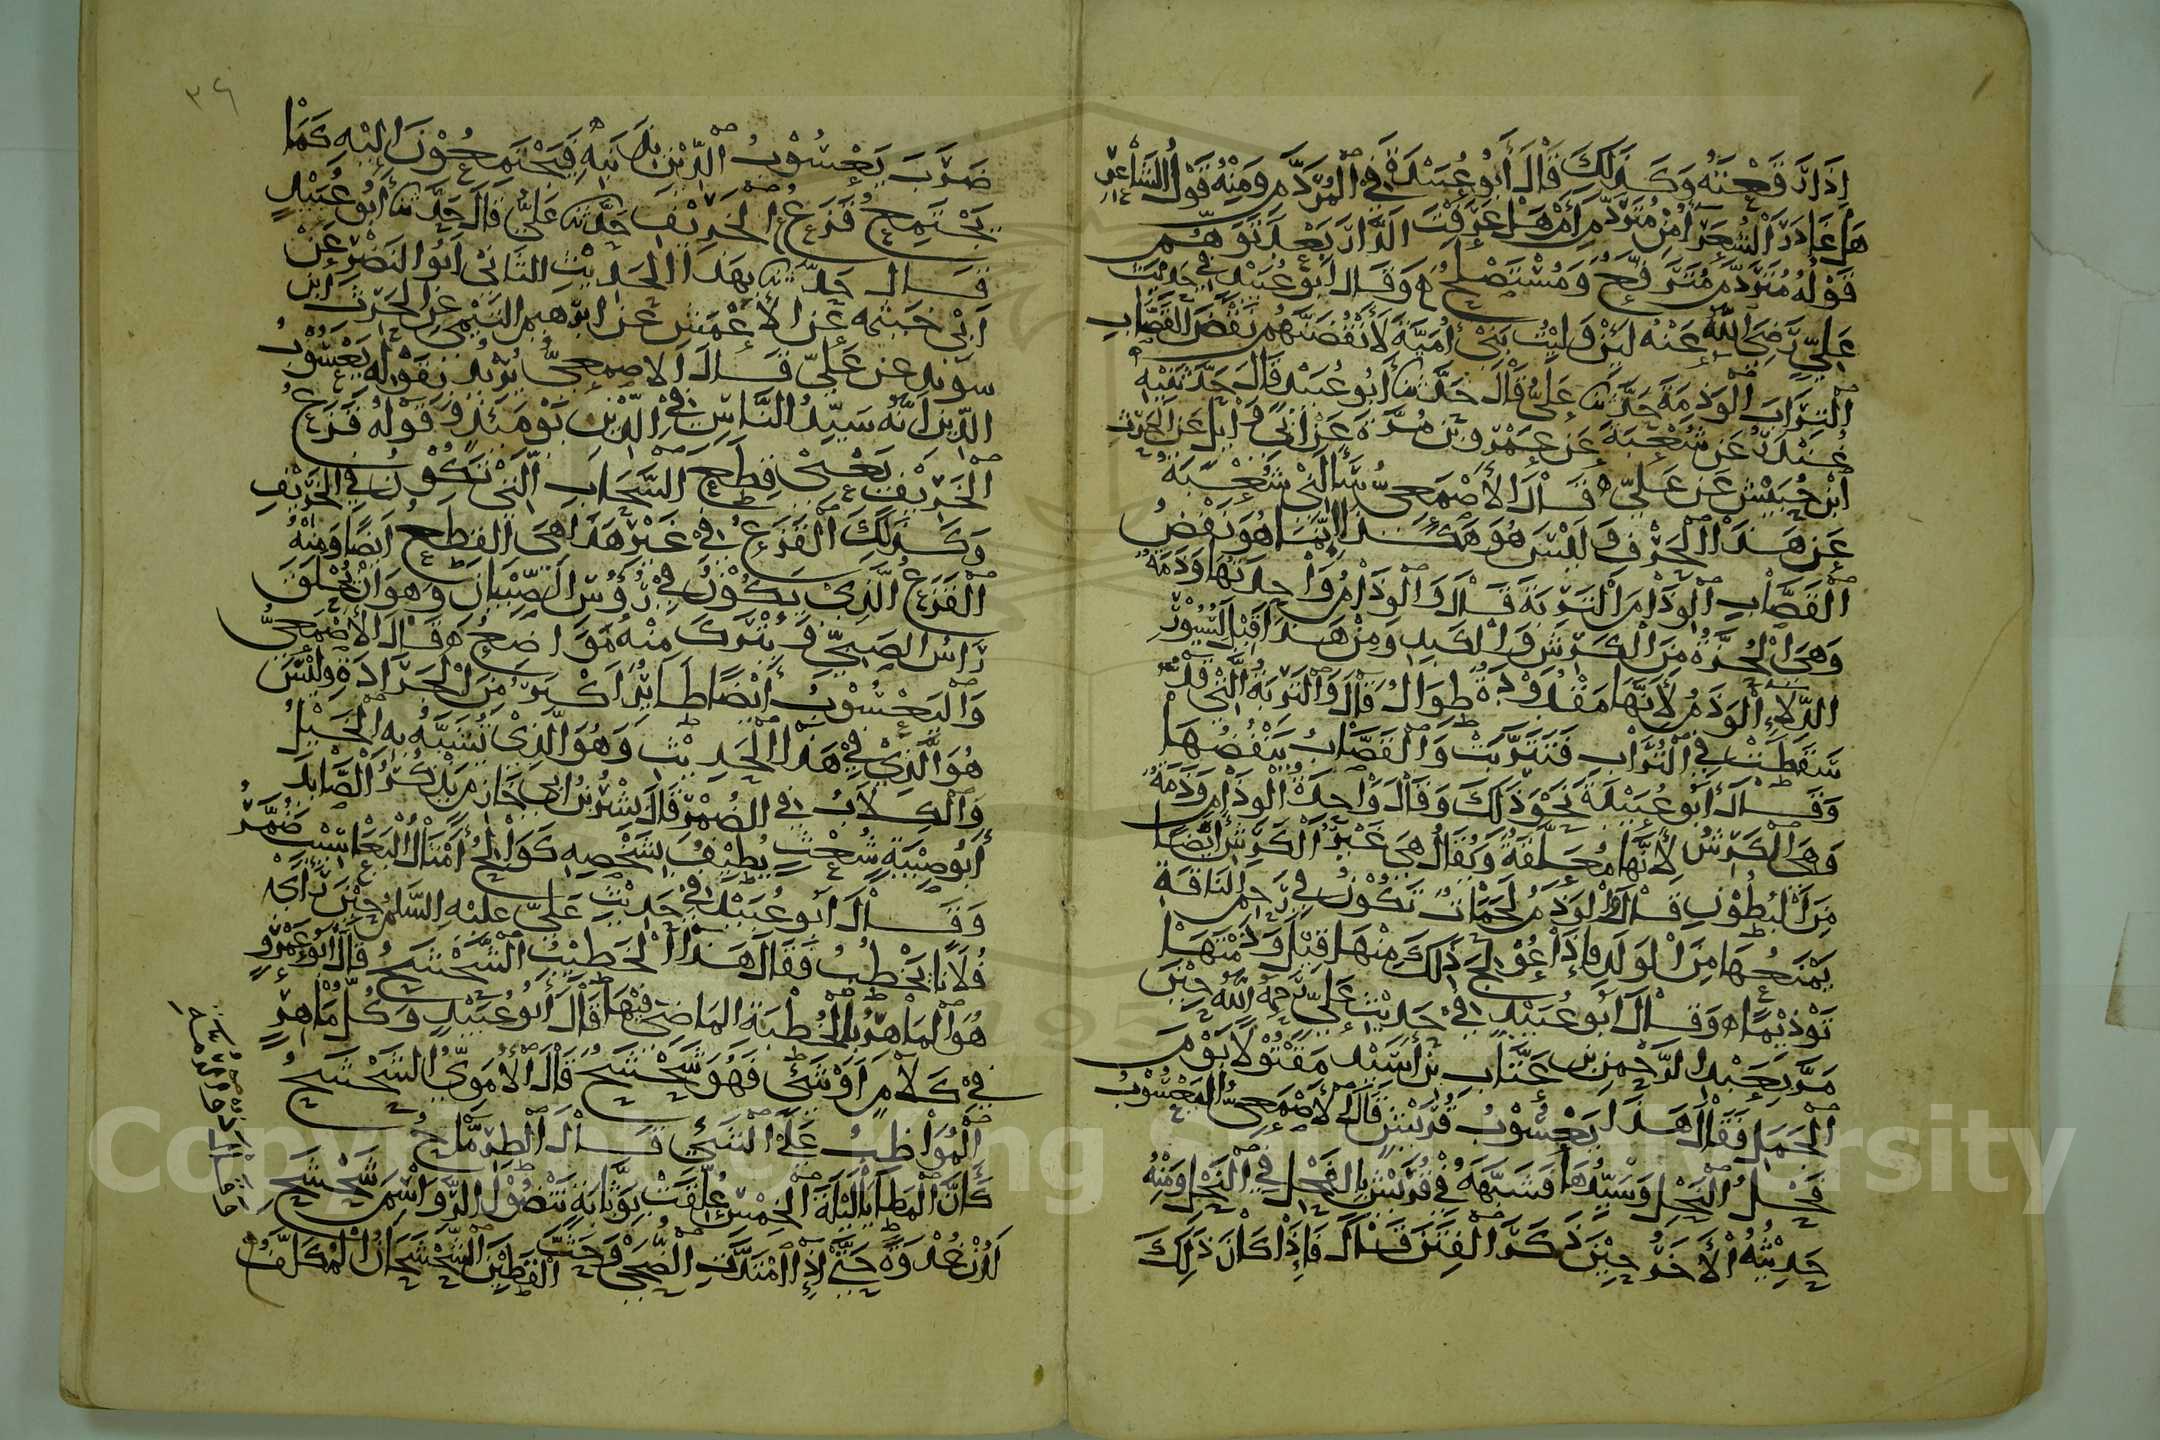 إذا رقعته وكذلك قال أبو عبيدة في المتردم ومنه قول الشاعر
هل غادر الشعراء من متردم أم هل عرفت الدار بعد توهم
قوله متردم مترقع ومستصلح ه وقال أبو عبيد في حديث
علي رضي الله عنه لئن وليت بني أمية لأنفضنهم نفض القصاب
التراب الوذمة حدثنا علي قال حدثنا أبو عبيد قال حدثنيه
غندر عن شعبة عن عمرو بن مرة عن أبي وائل عن الحرث
ابن حبيش عن علي ه قال الأصمعي سألني شعبة
عن هذا الحرف وليس هو هكذا إنما هو نفض
القصاب الوذام التربة قال والوذام واحدتها وذمة
وهي الحزة من الكرش والكبد ومن هذا قيل لسيور
الدلاء الوذم لأنها مقدودة طوال قال والتربة التي قد
سقطت في التراب فتتربت والقصاب ينفضها
وقال أبو عبيدة نحو ذلك وقال واحدة الوذام وذمة
وهي الكرش لأنها معلقة ويقال هي غير الكرش أيضا
من البطون قال والوذم لحمات تكون في رحم الناقة
يمنعها من الولد فإذا عولج ذلك منها قيل وذمتها
توذيما ه وقال أبو عبيد في حديث علي رحمه الله حين
مر بعبد الرحمن بن عتاب بن أسيد مقتولا يوم
الجمل فقال هذا يعسوب قريش قال الأصمعي اليعسوب
فحل النحل وسيدها فشبهه في قريش بالفحل في النحل ومنه
حديثه الأخر حين ذكر الفتن فقال فإذا كان ذلك
٣٤
ضرب يعسوب الدين بذنبه فيجتمعون إليه كما
يجتمع قزع الخريف حدثنا علي قال حدثنا أبو عبيد
قال حدثنا بهذا الحديث الثاني أبو النضر عن
أبي خيثمة عن الأعمش عن ابرهيم التيمي عن الحرث ابن
سويد عن علي قال الاصمعي يريد بقوله يعسوب
الدين انه سيد الناس في الدين يومئذ وقوله قزع
الخريف يعني قطع السحاب التي تكون في الخريف
وكذلك القزع في غير هذا هي القطع أيضا ومنه
القزع الذي يكون في رؤس الصبيان وهو ان يحلق
راس الصبي ويترك منه مواضع ه قال الأصمعي
واليعسوب أيضا طائر اكبر من الجرادة وليس
هو الذي في هذا الحديث وهو الذي تشبه به الخيل
والكلاب في الضمر قال بشر بن ابي خازم يذكر الصائد
أبو صبية شعث يطيف بشخصه كوالح أمثال اليعاسيب ضمر
وقال ابو عبيد في حديث علي عليه السلم حين رأى
فلانا يخطب فقال هذا الخطيب الشحشح قال أبو عمرو
هو الماهر بالخطبة الماضي فيها قال أبو عبيد وكل ماهر
في كلام او شئ فهو شحشح قال الأموي الشحشح
المواظب على الشئ قال الطرماح
كأن المطايا ليلة الخمس علقت بوثابة تنضو الرواسم شحشح
لدن غدوة حتى إذا امتدت الضحى وحث القطين الشحشحان المكلف